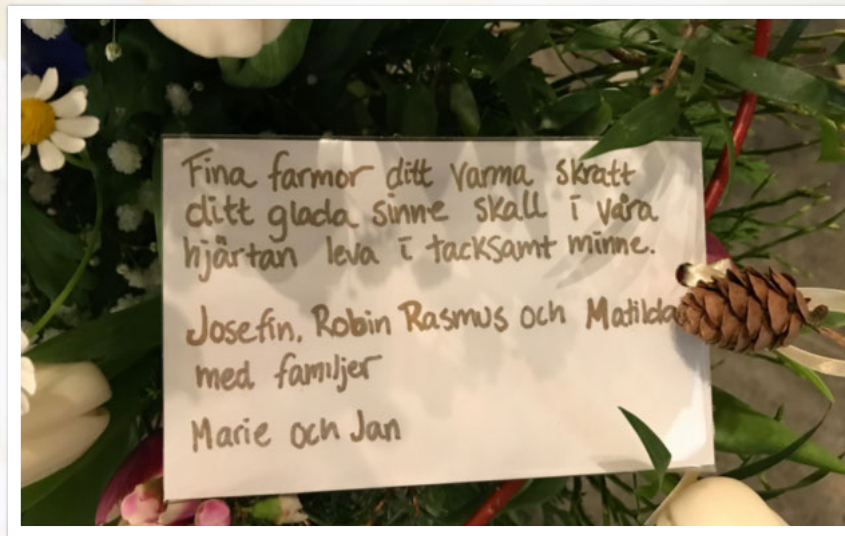 Fina farmor ditt varma skratt
ditt glada sinne skall i våra
hjärtan leva i tacksamt minne.
Josefin, Robin Rasmus och Matilda
med familjer
Marie och Jan